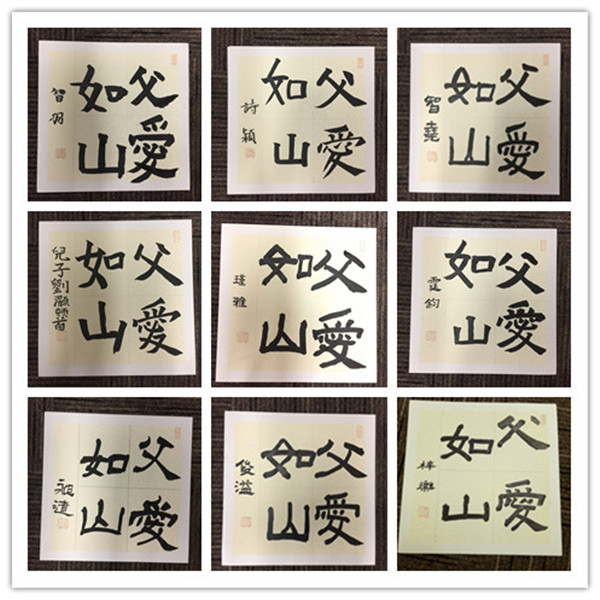 父愛
如山
智羽
父愛
如山
詩穎
父愛
如山
智堯
父愛
如山
兒子劉灝頓首
父愛
如山
瑾雅
父愛
如山
霆鈞
父愛
如山
父愛
如山
俊溢
父愛
如山
梓